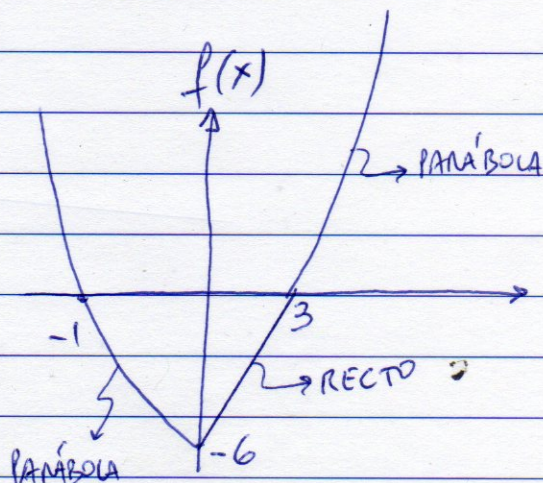 f(x)
PARÁBOLA
-1
3
RECTO
-6
PARÁBOLA